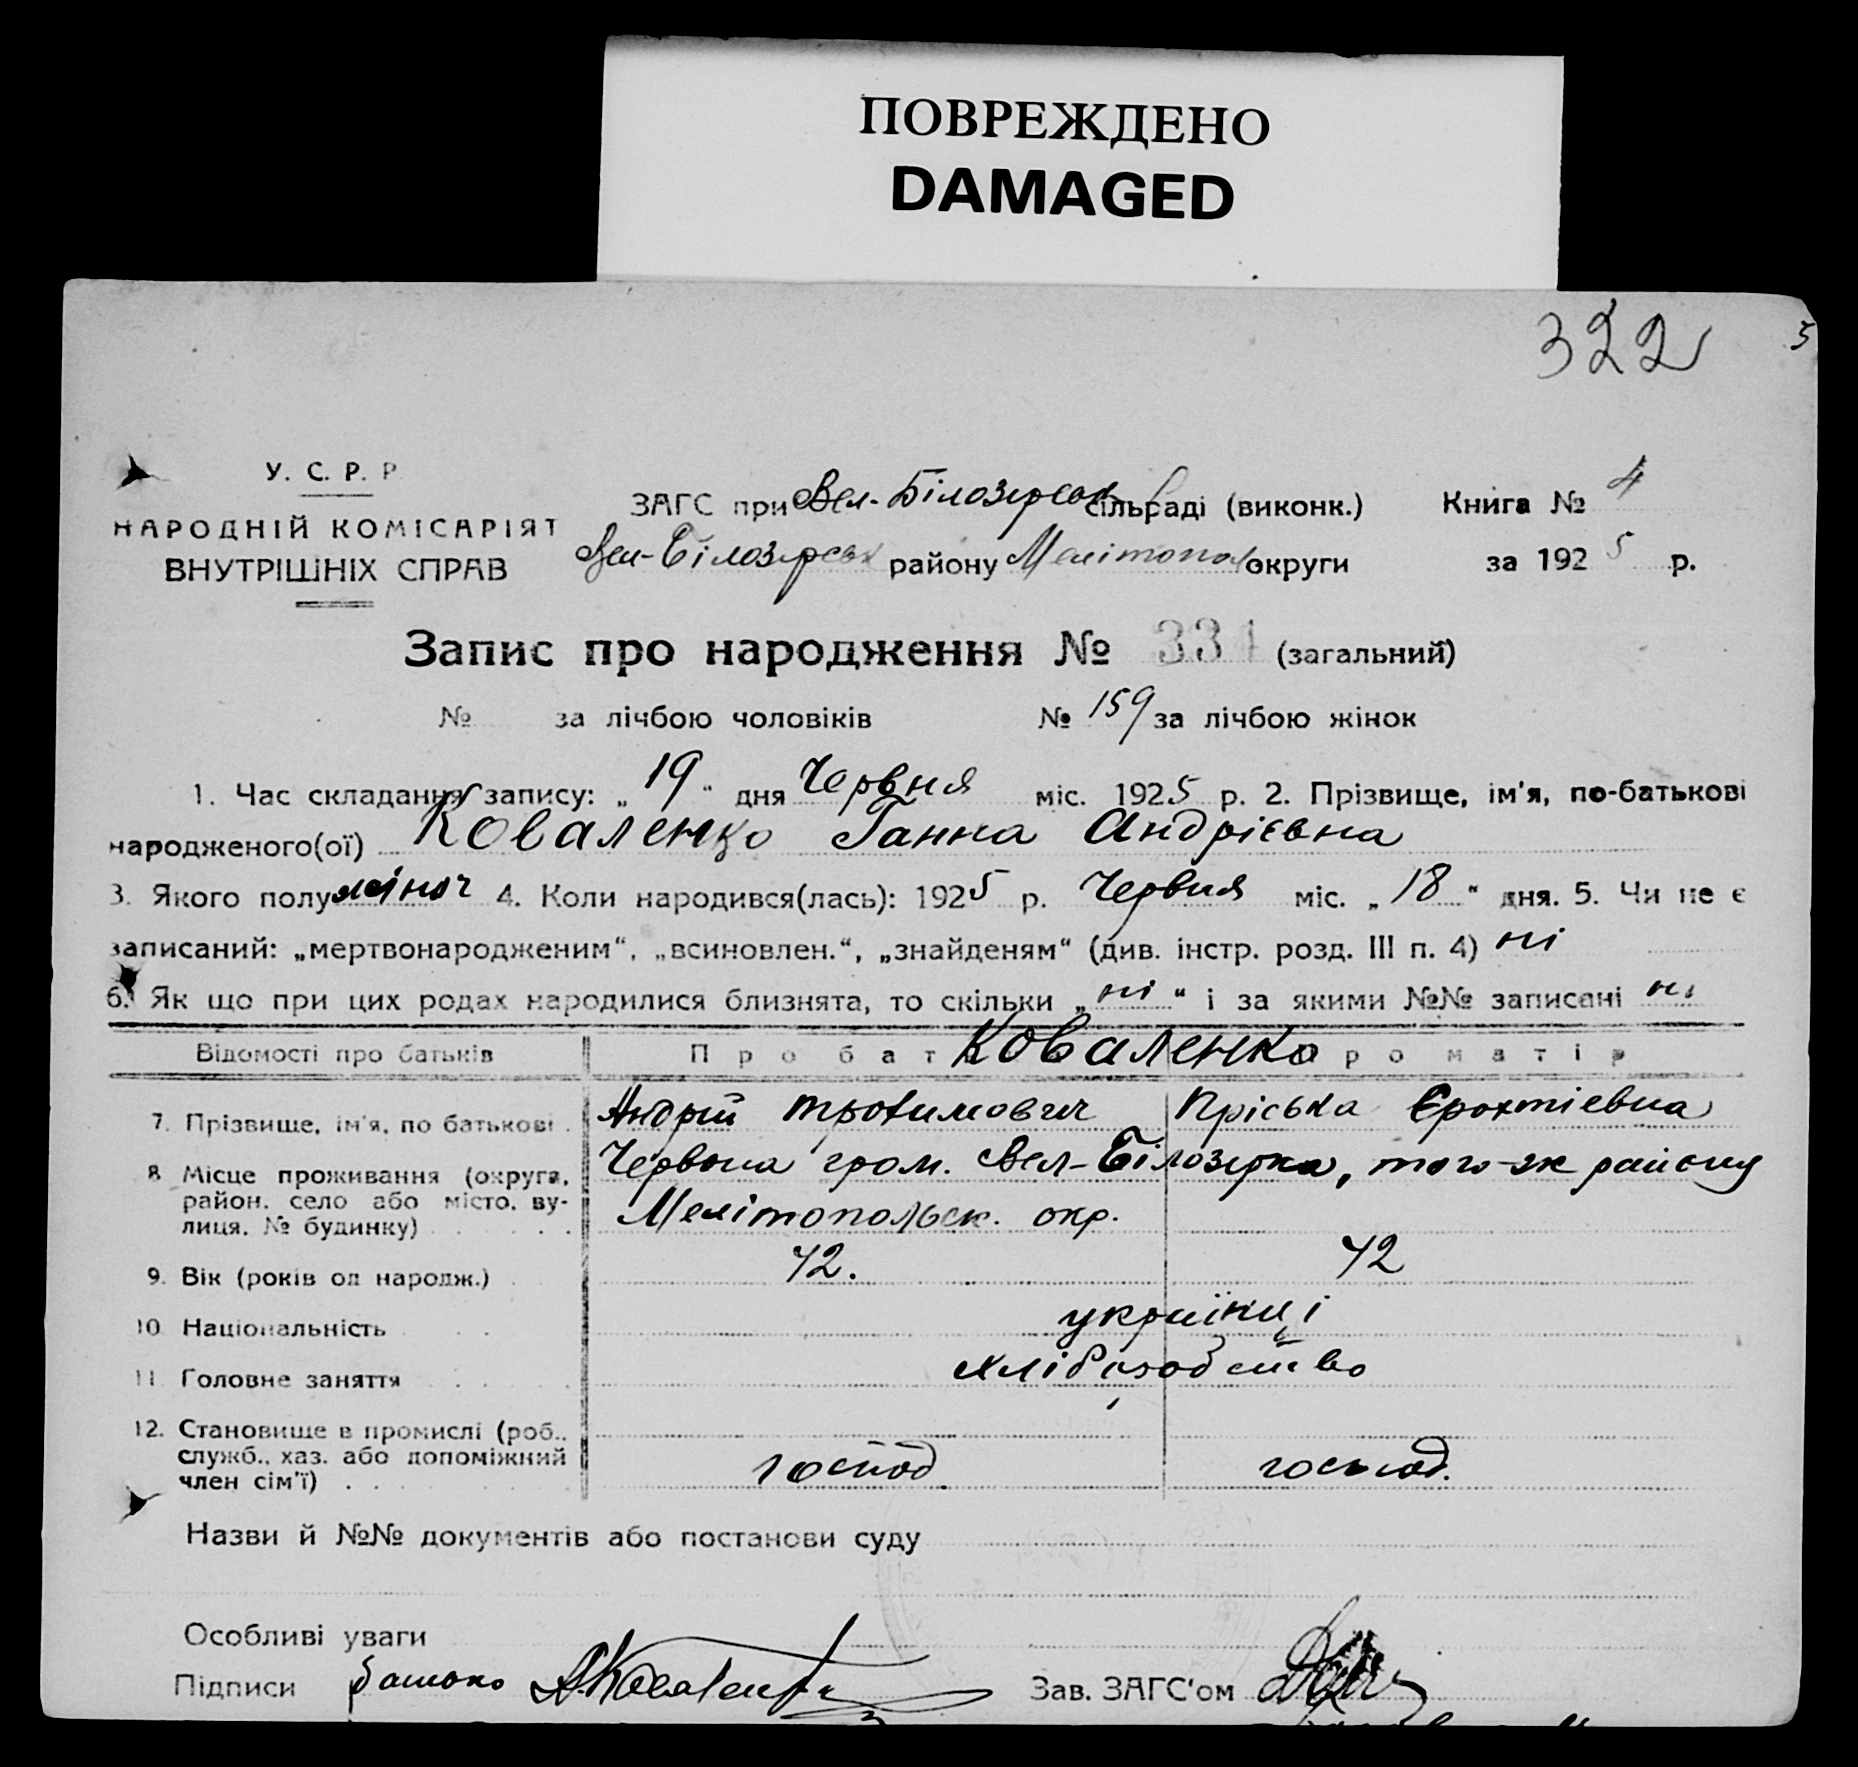 ПОВРЕЖДЕНО
DAMAGED
322
5
У. С. Р. Р
НАРОДНІЙ КОМІСАРІЯТ
ВНУТРІШНІХ СПРАВ
ЗАГС при Вел-Білозірськ сільраді (виконк.) Книга № 4
Вел-Білозірськ району Мелітопол округи за 1925 р.
Запис про народження № 331 (загальний)
№ за лічбою чоловіків № 159 за лічбою жінок
1. Час складання запису: „19" дня Червня міс. 1925 р. 2. Прізвище, ім'я, по-батькові
народженого(ої) Коваленко Ганна Андрієвна
3. Якого полу жіноч 4. Коли народився(лась): 1925 р. Червня міс. „18" дня. 5. Чи не є
записаний: „мертвонародженим", „всиновлен.", „знайденям" (див. інстр. розд. III п. 4) ні
6. Як що при цих родах народилися близнята, то скільки „ні" і за якими №№ записані ні
Відомості про батьків Про бат Коваленко ро матір
7. Прізвище, ім'я, по батькові . Андрій Трохимович Пріська Єрохтієвна
8 Місце проживання (округа, район, село або місто, вулиця, № будинку) Червона гром. Вел-Білозірка, того-ж району
Мелітопольск. окр.
9. Вік (років од народж.) 42. 42
10 Національність українці
11 Головне заняття хліборобство
12. Становище в промислі (роб.,
служб., хаз. або допоміжний
член сім'ї) господ. господ.
Назви й №№ документів або постанови суду
Особливі уваги
Підписи батько А Коваленко Зав. ЗАГС'ом